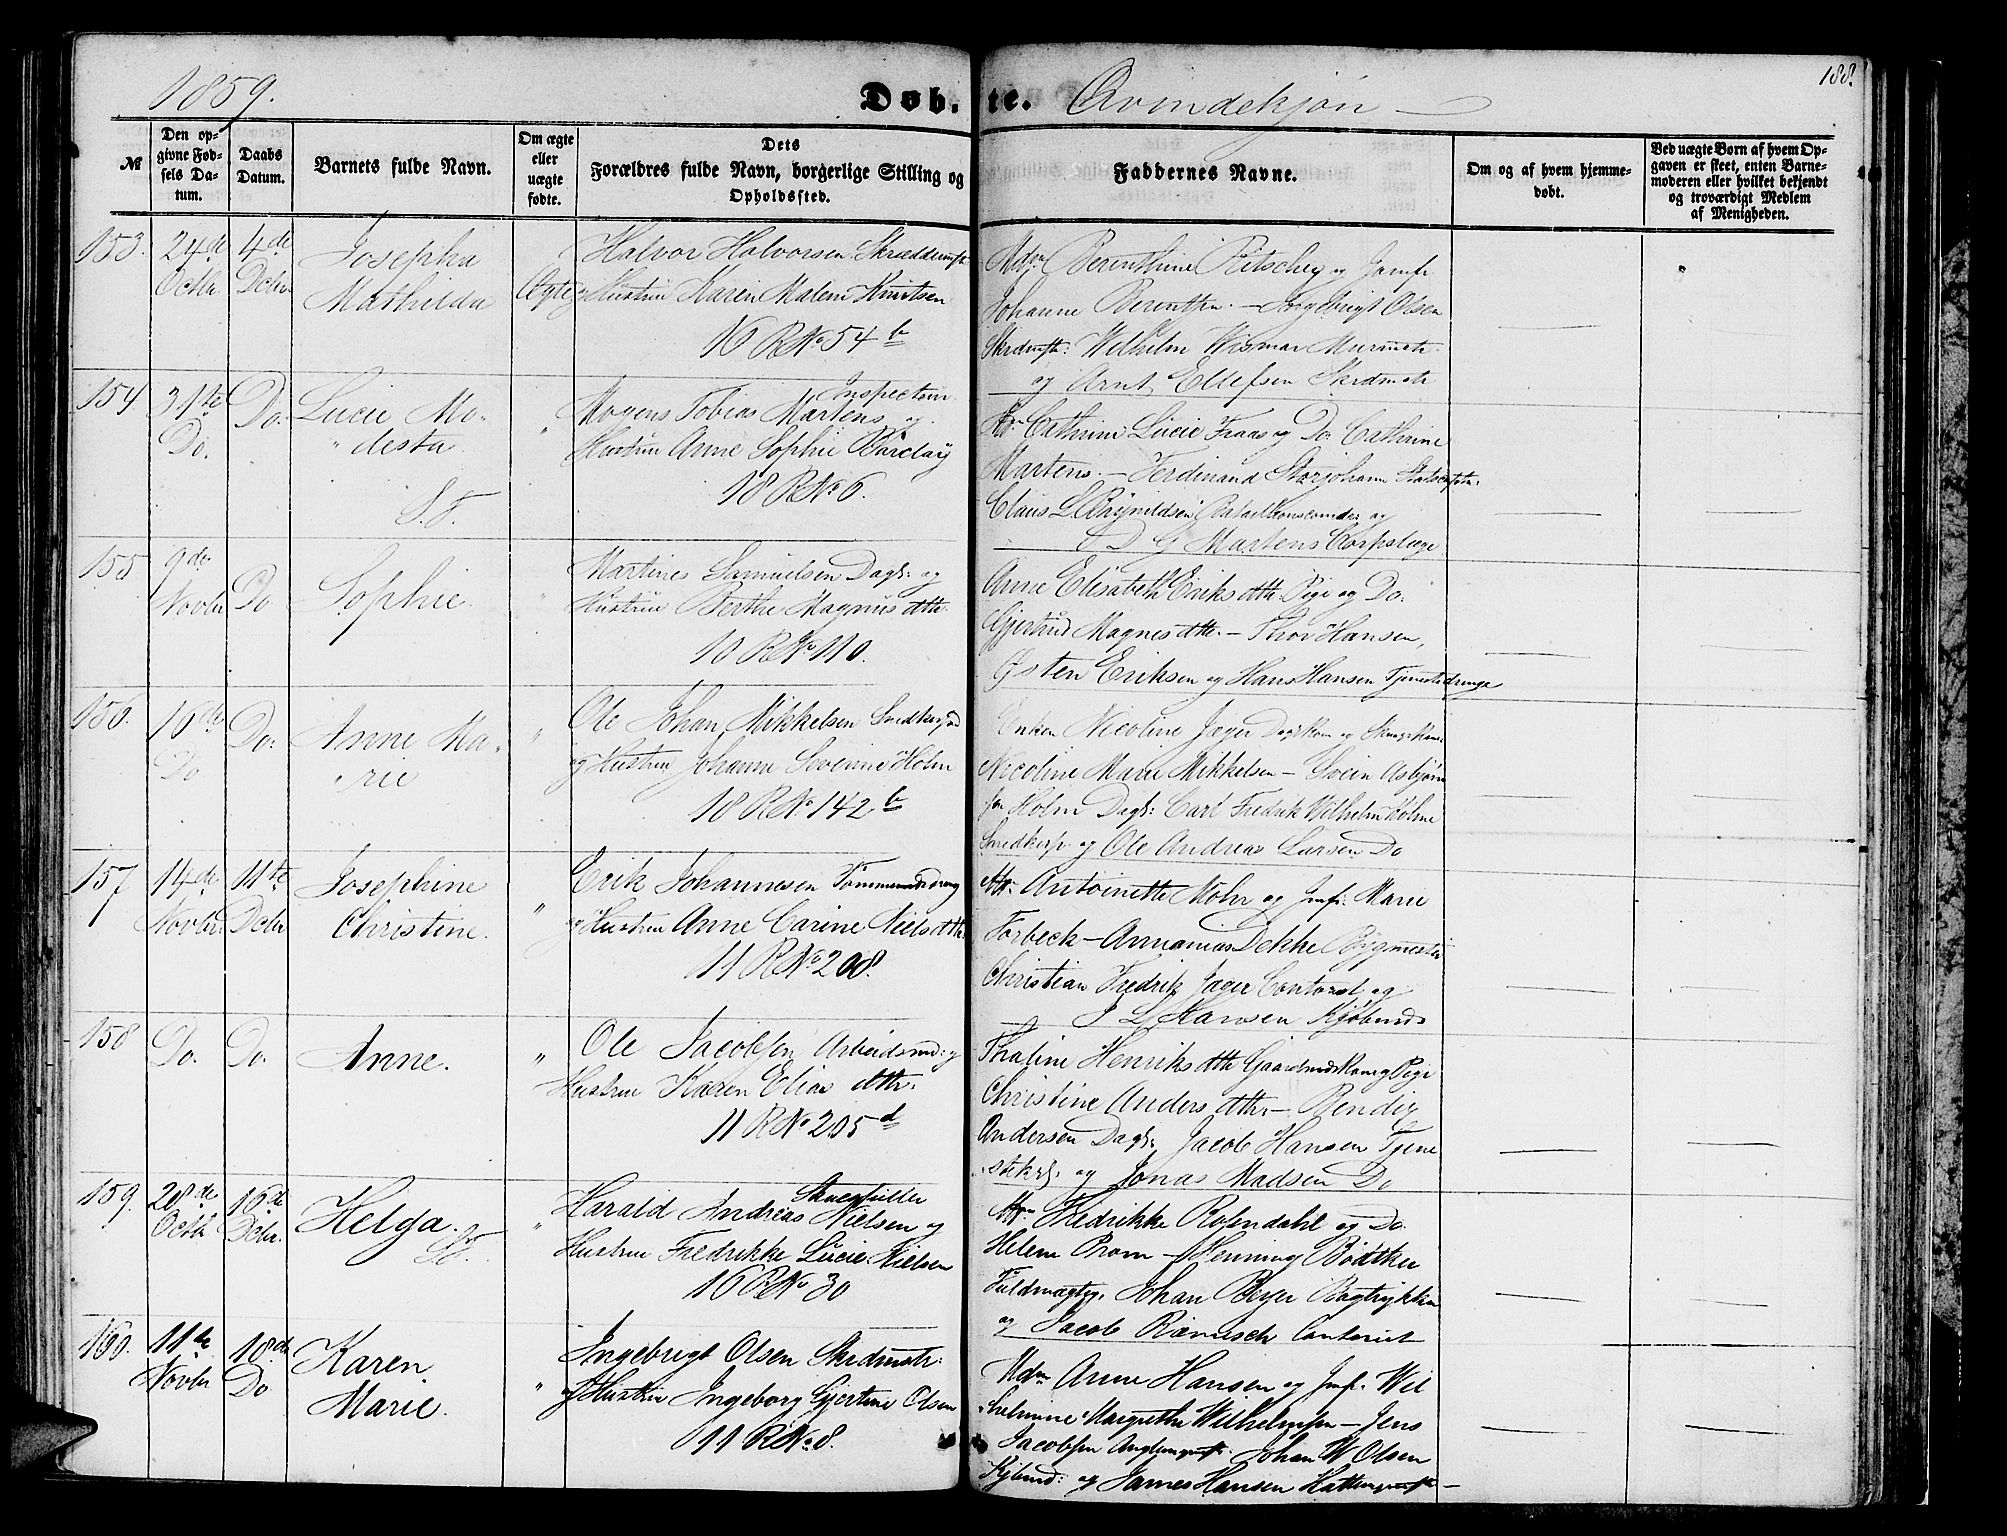 1859.
Døb-
te.
Qvindekjøn
188.
№
Den op-
givne Fød-
sels Da-
tum.
Daabs
Datum.
Barnets fulde Navn.
Om ægte
eller
uægte
fødte.
Dets
Forældres fulde Navn, borgerlige Stilling og
Opholdssted.
Faddernes Navne.
Om og af hvem hjemme-
døbt.
Ved uægte Børn af hvem Op-
gaven er skeet, enten Barne-
moderen eller hvilket bekjendt
og troværdigt Medlem
af Menigheden.
153.
24de
Octbr
4de
Dcbr
Josepha
Mathilda
Ægte
Halvor Halvorsen Skræddermstr
og Hustru Karen Malene Knutsen
16 R No 54 b
Mdm Berenthine Ritschey og Jomfr
Johanne Berentsen. – Ingebrigt Olsen
Skrdmstr: Wilhelm Wismar Murmstr.
og Arnt Ellefsen Skrdmstr
154
31te
Do.
Do.
Lucie Mo-
desta
S. F.
"
Inspecteur
Mogens Tobias Martens og
Hustru Anne Sophie Barclay
18 R No 6.
Md Cathrine Lucie Fraas og Do. Cathrine
Martens. – Ferdinand Storjohann
Claus L Brynildsen og
D G Martens Corpslæge
155
9de
Novbr
Do
Sophie
"
Martines Samuelsen Dagl: og
Hustru Berthe Magnus dtr.
10 R No 110.
Anne Elisabeth Eriks dtr. Pige og Do.
Gjertrud Magnes dtr. – Thor Hansen,
Østen Eriksen og Hans Hansen Tjenestedrenge
156.
10de
Do
Do.
Anne Ma-
rie
"
Ole Johan Mikkelsen
og Hustru Johanne Severine Holm
18 R No 142 b
Enken Nicoline Jæger og
Nicoline Marie Mikkelsen – Svein Asbjørn
sen Holm Dagl: Carl Fredrik Wilhelm Holme
Snedkersv og Ole Andreas Larsen Do
157
14de
Novbr.
11te
Dcbr
Josephine
Christine.
"
Erik Johannesen Tømmermdsdreng
og Hustru Anne Carine Niels dtr.
11 R No 208.
Md. Antoinette Mohr og Jmfr. Marie
Forbeck – Annanias Dekke Bygmester
Christian Fredrik Jæger Contorist og
J L Hansen Kjøbmd
158
Do.
Do.
Anne.
"
Ole Jacobsen Arbeidsmd: og
Hustru Karen Elias dtr.
11 R No 205 d
Thaline Henriks dtr Pige
Christine Anders dtr. – Bendix
Andersen Dagl. Jacob Hansen Tjene
stekarl. og Jonas Madsen Do
159.
28de
Octbr
16de
Dcbr.
Helga.
S F.
"
Harald Andreas Nielsen og
Hustru Fredrikke Lucie Nielsen
16 R No 30
Md. Fredrikke Rosendahl og Do.
Helene Prom – Henning Bødtker
Fuldmægtig, Johan Beyer Bogtrykker
og Jacob Contorist
160.
11te
Novbr
18de
Do
Karen
Marie.
"
Ingebrigt Olsen Skrdmstr.
og Hustru Ingeborg Gjertine Olsen
11 R No 8.
Mdm Anne Hansen og Jmfr. Wil
helmine Margrethe Wilhelmsen – Jens
Jacobsen Johan W Olsen
Kjbmd: og James Hansen